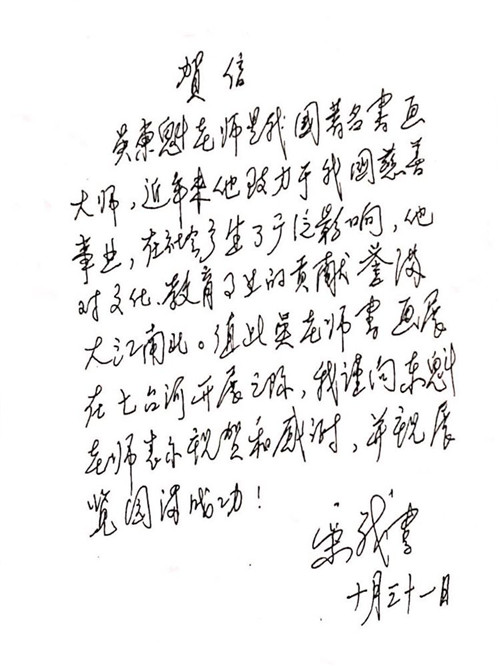 賀信
吳東魁老师是我國著名書画
大师，近年来他致力于我國慈善
事业，在社会产生了广泛影响，他
对文化、教育事业的贡献誉满
大江南北。值此吳老师書画展
在七台河开展之际，我谨向东魁
老师表示祝贺和感谢，并祝展
览圆满成功！
十月三十一日